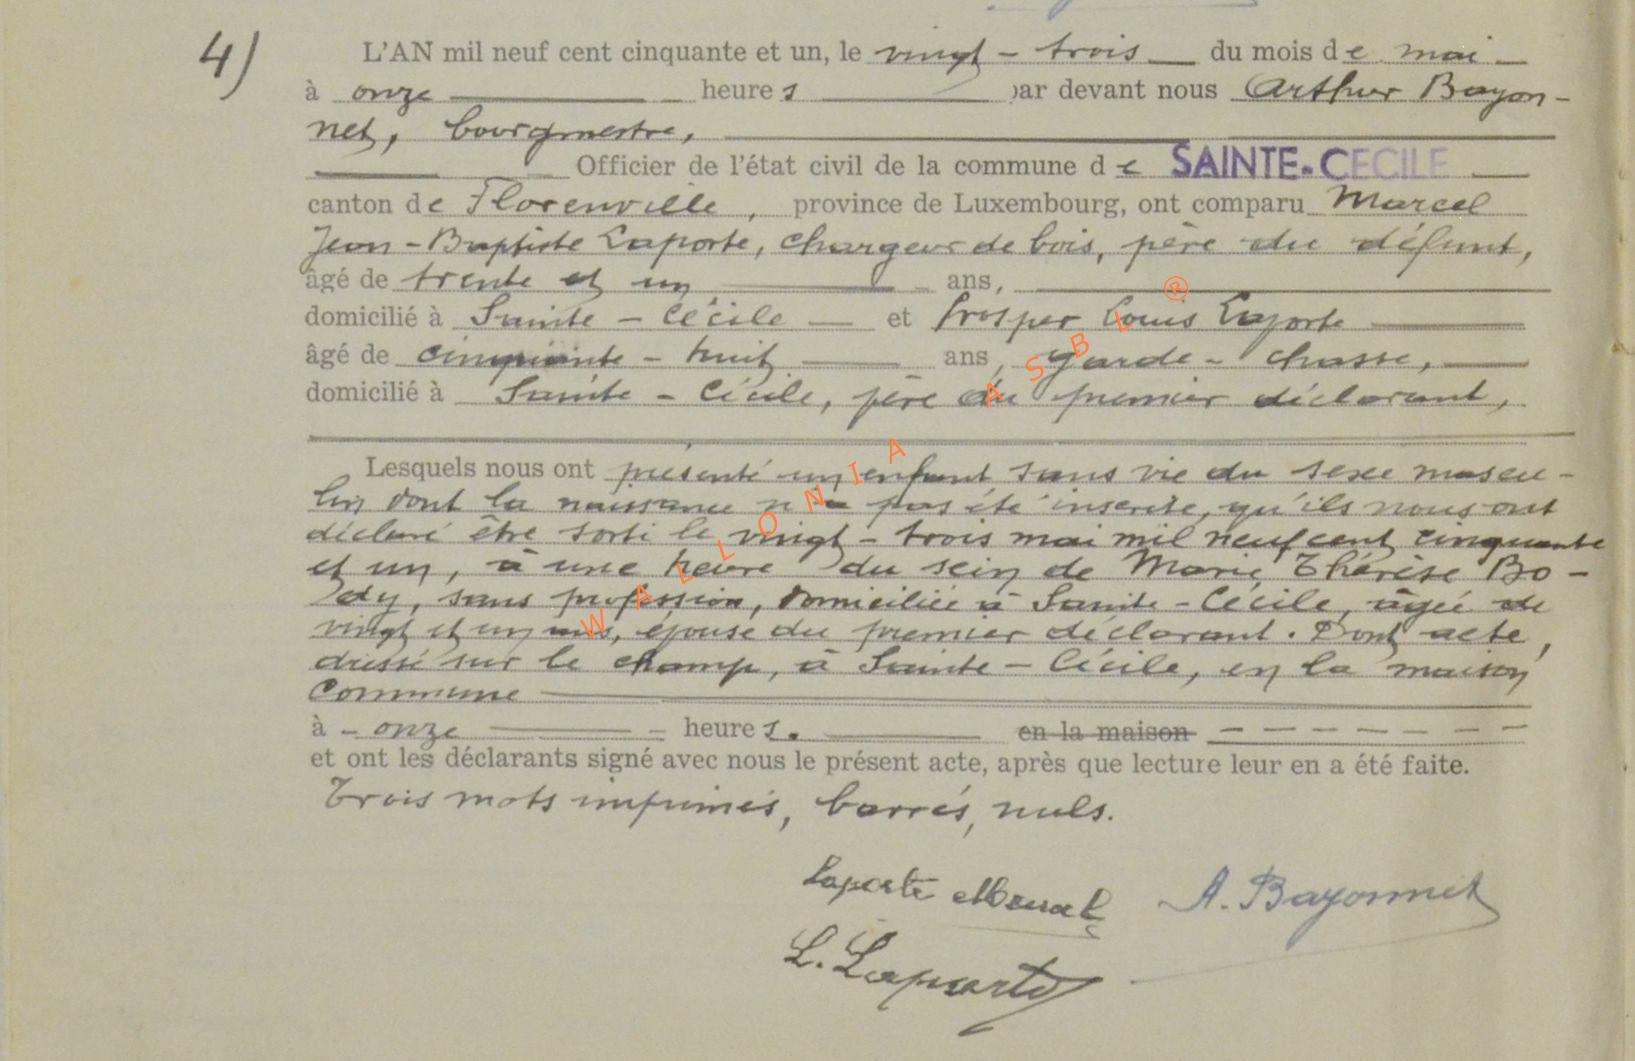 4)
L'AN mil neuf cent cinquante et un, le vingt - trois du mois de mai
à onze heures par devant nous Arthur Bayon-
net, bourgmestre,
Officier de l'état civil de la commune de SAINTE-CECILE
canton de Florenville, province de Luxembourg, ont comparu Marcel
Jean-Baptiste Laporte, chargeur de bois, père du défunt,
âgé de trente et un ans,
domicilié à Sainte - Cécile et Prosper Louis Laporte
âgé de cinquante - huit ans, garde - chasse,
domicilié à Sainte - Cécile, père du premier déclarant,
Lesquels nous ont présenté un enfant sans vie du sexe mascu-
lin dont la naissance n'a pas été inscrite, qu'ils nous ont
déclaré être sorti le vingt - trois mai mil neuf cent cinquante
et un, à une heure du sein de Marie Thérèse Bo-
dy, sans profession, domiciliée à Sainte - Cécile, âgée de
vingt et un ans, épouse du premier déclarant. Dont acte,
dressé sur le champ, à Sainte - Cécile, en la maison
commune
à - onze heures. en la maison
et ont les déclarants signé avec nous le présent acte, après que lecture leur en a été faite.
Trois mots imprimés, barrés, nuls.
Laporte Marcel A. Bayonnet
L. Laporte
WALLONIA ASBL ®